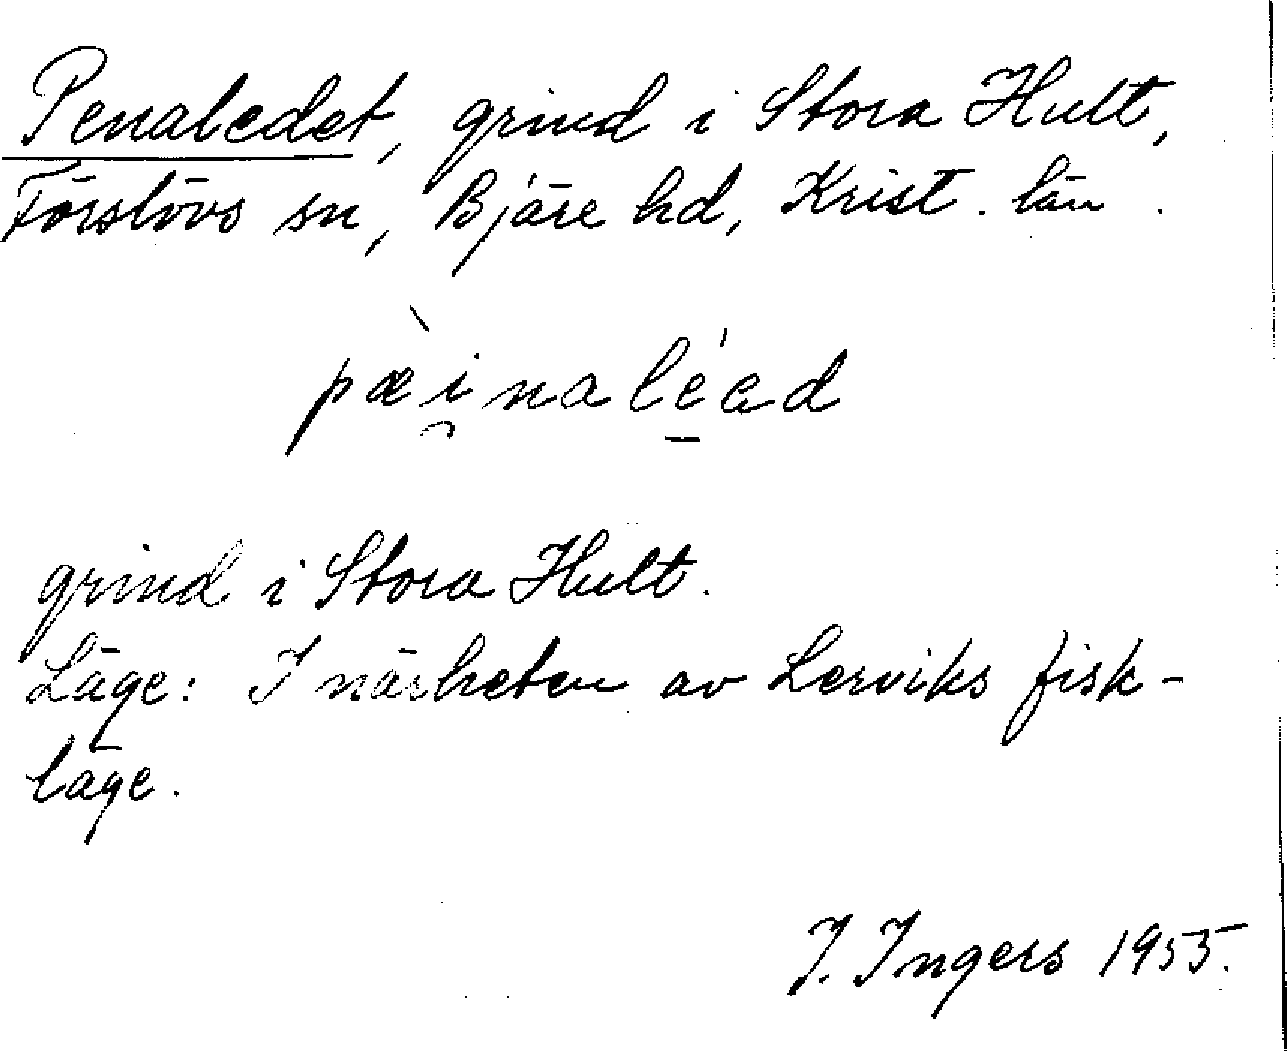 Penaledet, grind i Stora Hult,
Förslövs sn, Bjäre hd, Krist. län.
pæ̀i̯naléad
grind i Stora Hult.
Läge: I närheten av Lerviks fisk-
läge.
I. Ingers 1955.